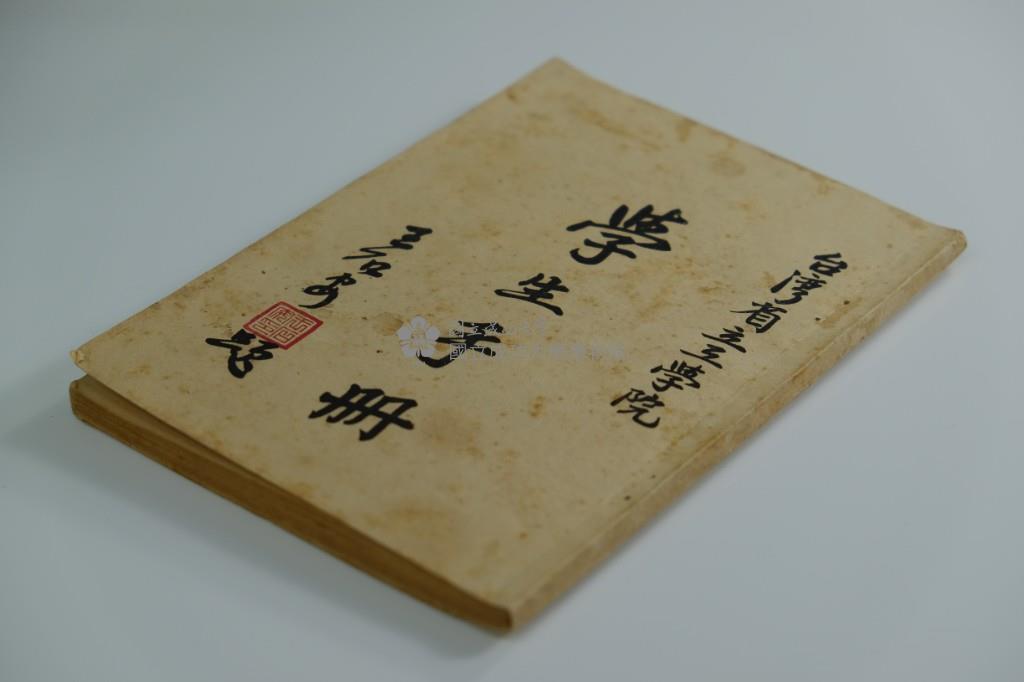 台湾省立工學院
學生手冊
王石安題